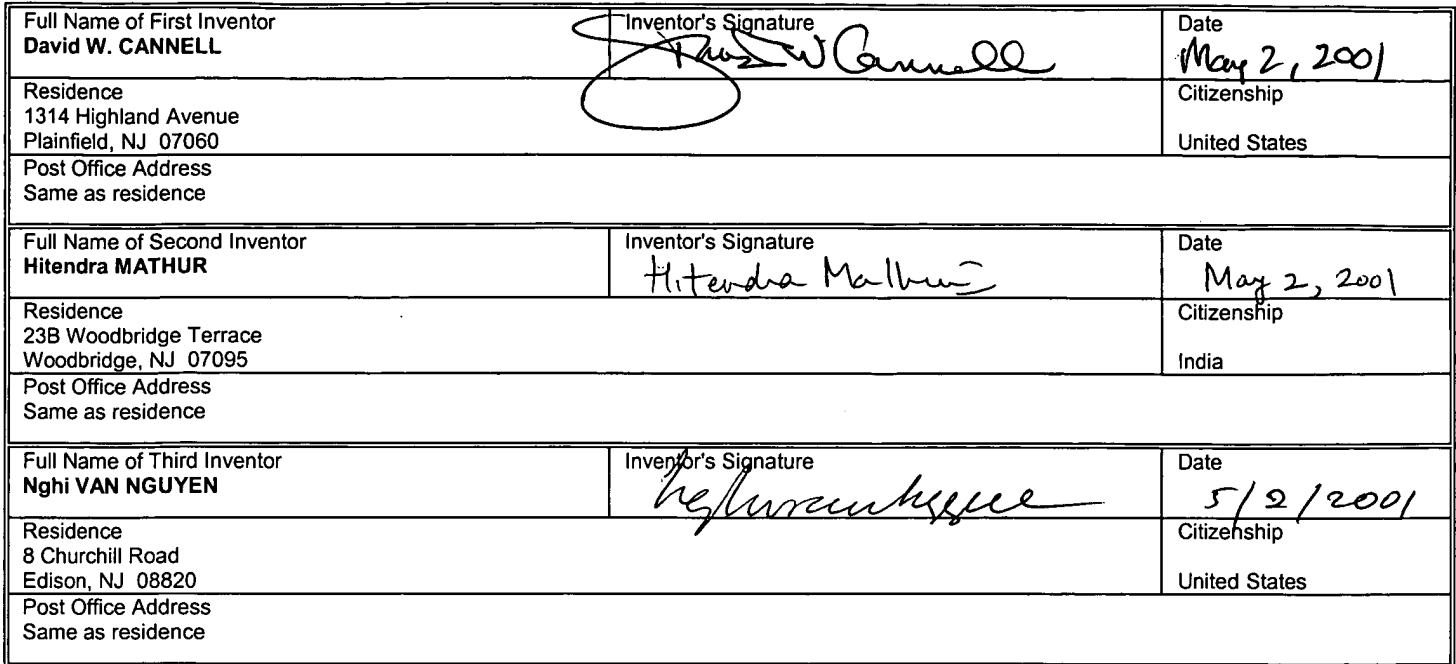 Full Name of First Inventor
David W. CANNELL
Inventor's Signature
W Cannell
Date
May 2, 2001
Residence
1314 Highland Avenue
Plainfield, NJ 07060
Citizenship
United States
Post Office Address
Same as residence
Full Name of Second Inventor
Hitendra MATHUR
Inventor's Signature
Hitendra Mathur
Date
May 2, 2001
Residence
23B Woodbridge Terrace
Woodbridge, NJ 07095
Citizenship
India
Post Office Address
Same as residence
Full Name of Third Inventor
Nghi VAN NGUYEN
Inventor's Signature
Date
5/2/2001
Residence
8 Churchill Road
Edison, NJ 08820
Citizenship
United States
Post Office Address
Same as residence